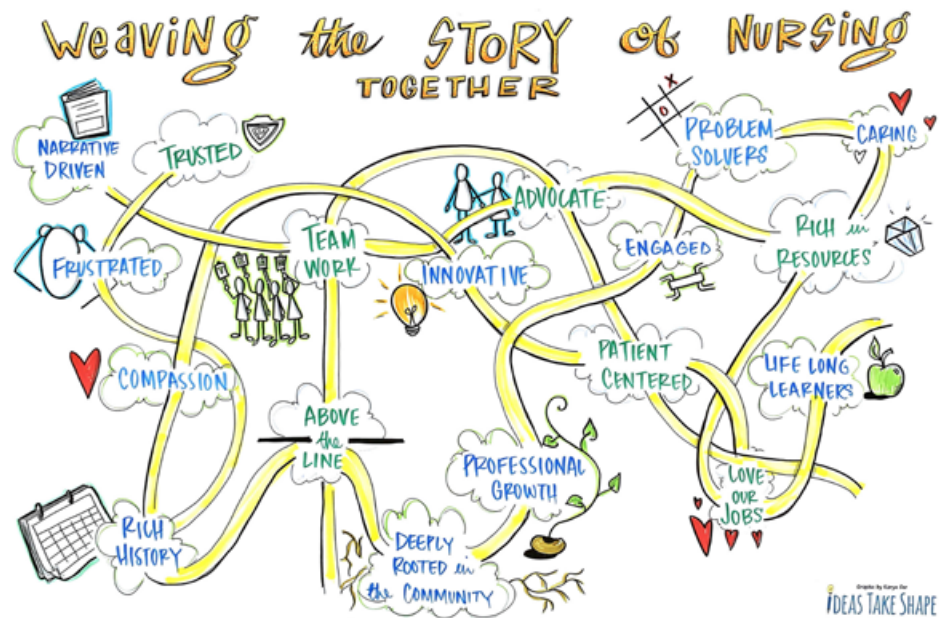 WEAVING the STORY of NURSING
TOGETHER
NARRATIVE
DRIVEN
TRUSTED
PROBLEM
SOLVERS
CARING
ADVOCATE
TEAM
WORK
RICH in
RESOURCES
ENGAGED
FRUSTRATED
INNOVATIVE
COMPASSION
PATIENT
CENTERED
LIFE LONG
LEARNERS
ABOVE
the
LINE
PROFESSIONAL
GROWTH
LOVE
OUR
JOBS
RICH
HISTORY
DEEPLY
ROOTED in
the COMMUNITY
Graphics by Karyn for
IDEAS TAKE SHAPE